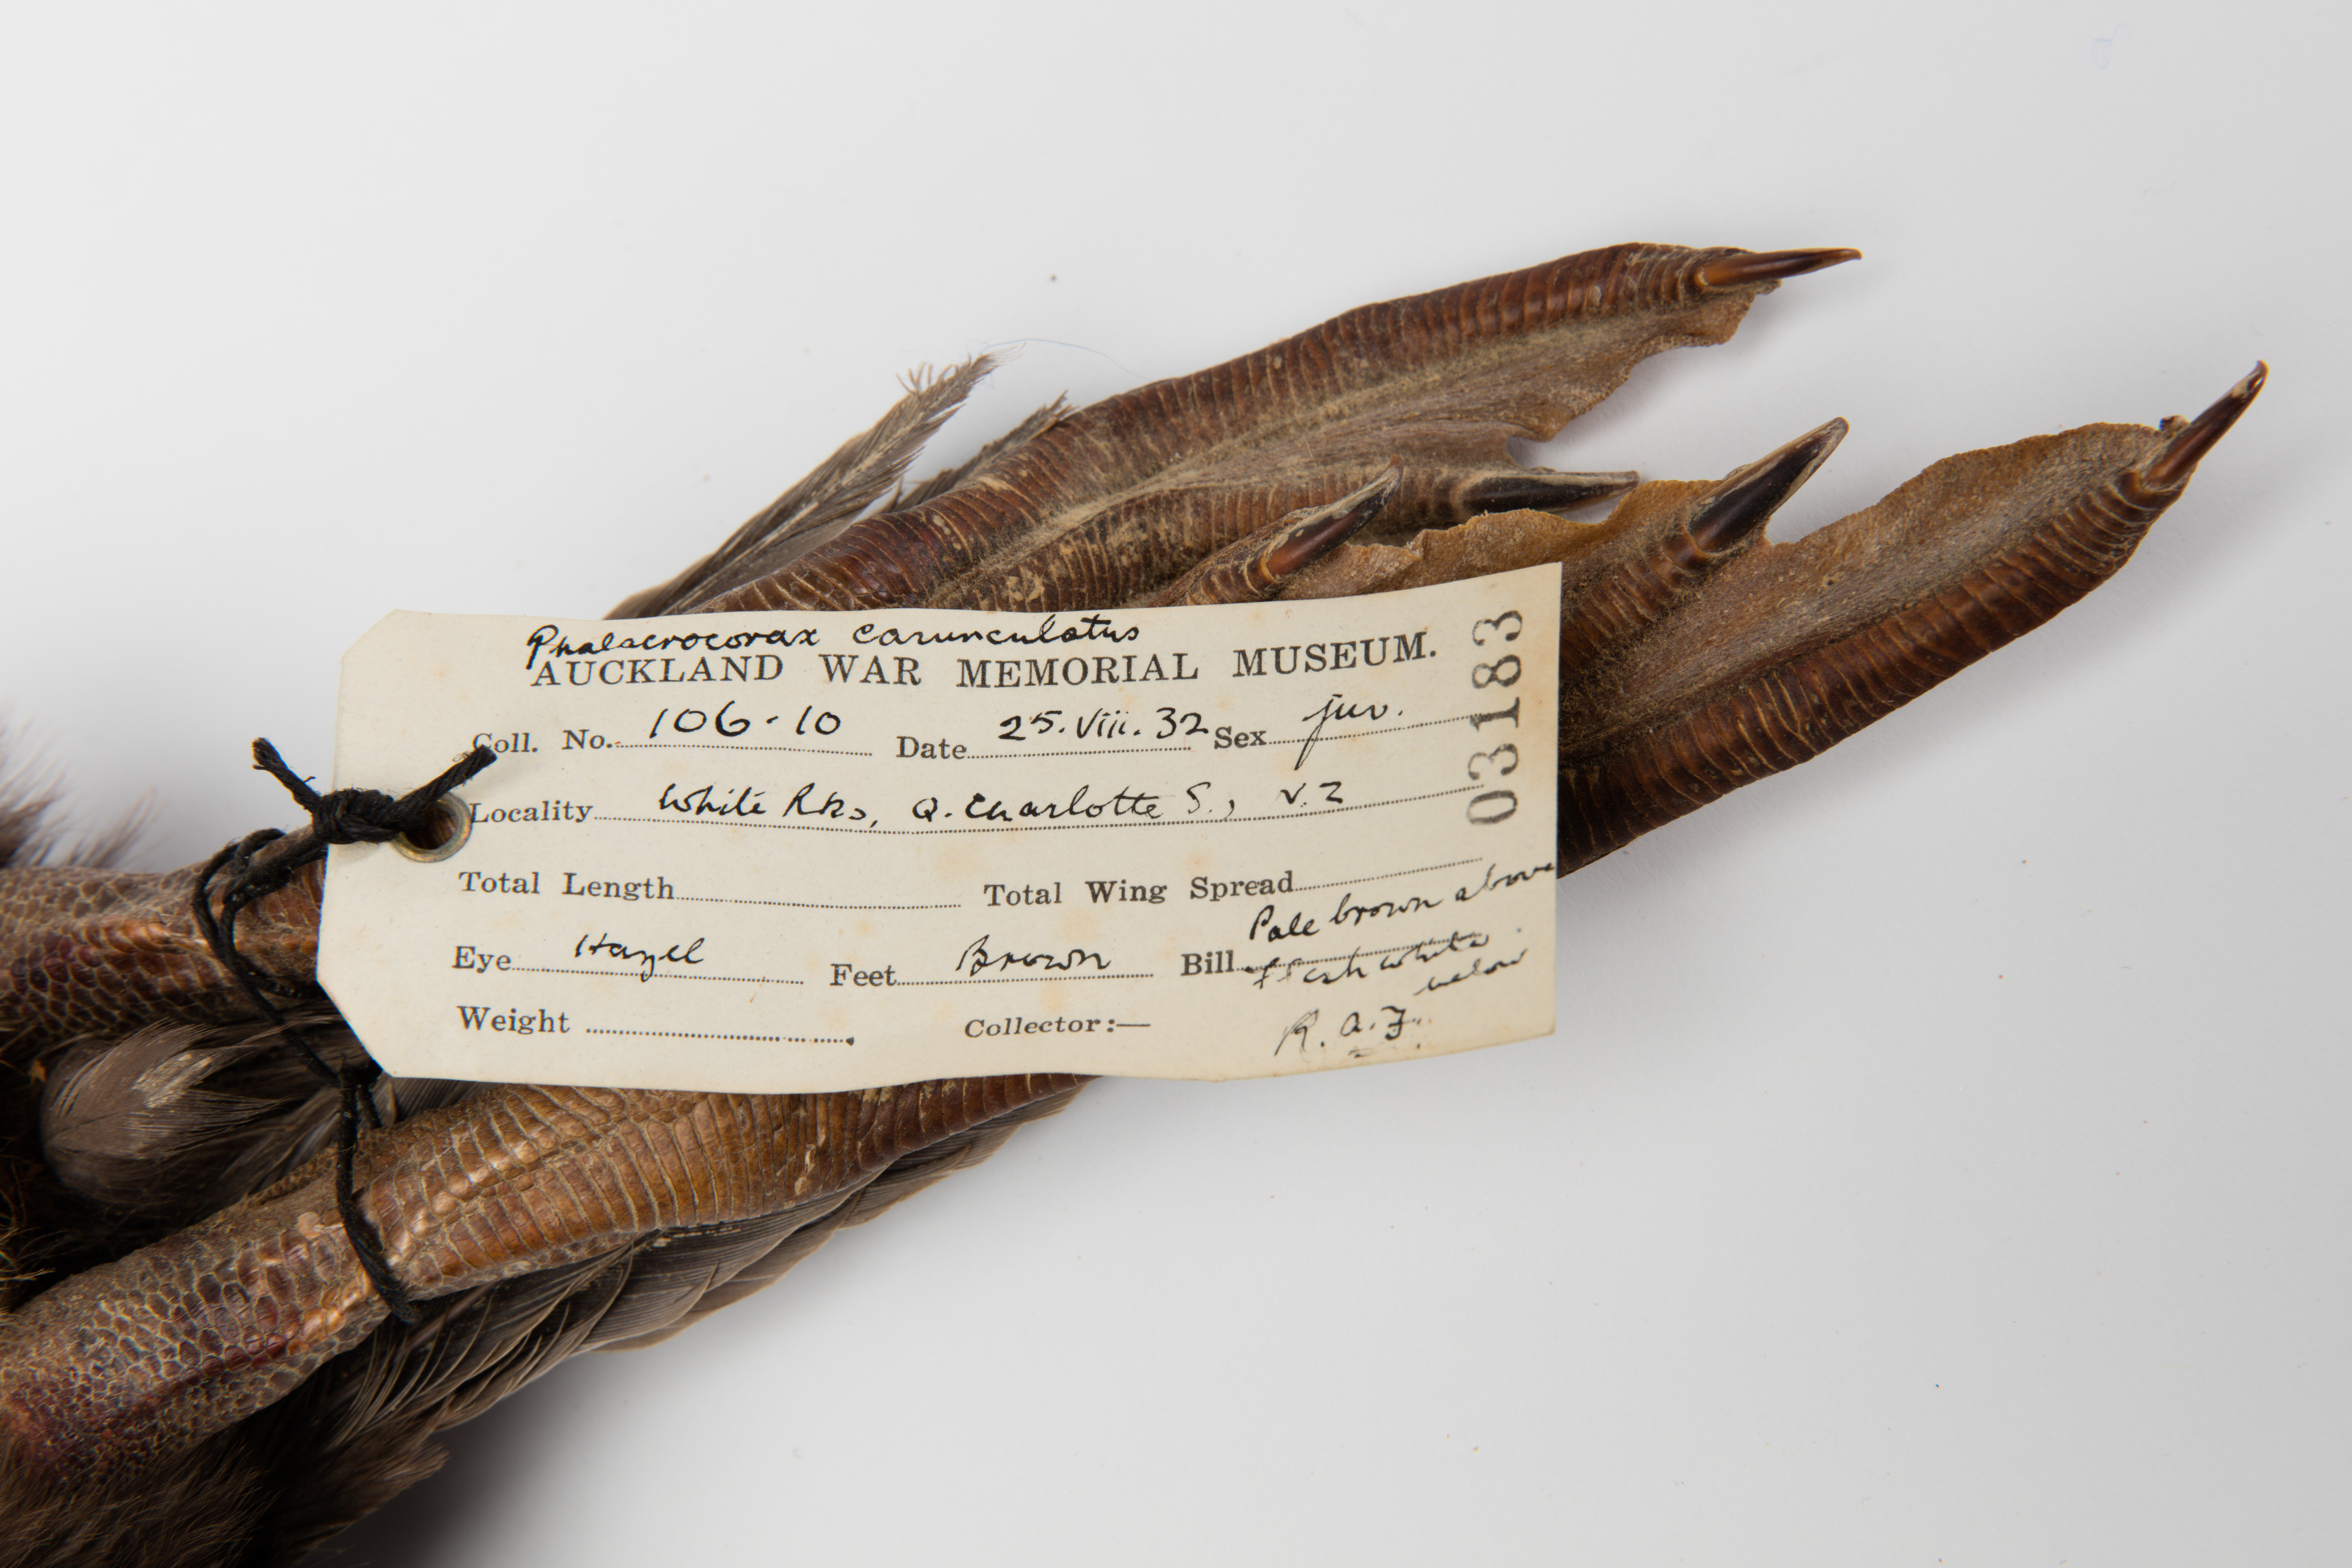 Phalacrocorax carunculatus
AUCKLAND WAR MEMORIAL MUSEUM.
Coll. No. 106.10 Date 25.viii.32 Sex juv.
Locality White Rks, Q. Charlotte S., N.Z
Total Length Total Wing Spread
Eye Hazel Feet Brown Bill Pale brown above
flesh white
below
Weight Collector:— R.A.F.
031183